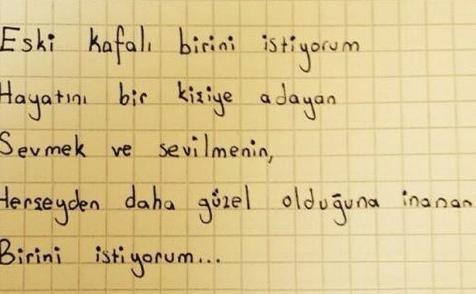 Eski kafalı birini istiyorum
Hayatını bir kişiye adayan
Sevmek ve sevilmenin,
Herşeyden daha güzel olduğuna inanan
Birini istiyorum...